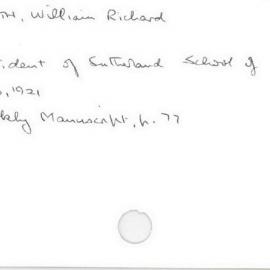 TH, William Richard
ident of Sutherland School of
, 1921
Manuscript, p. 77